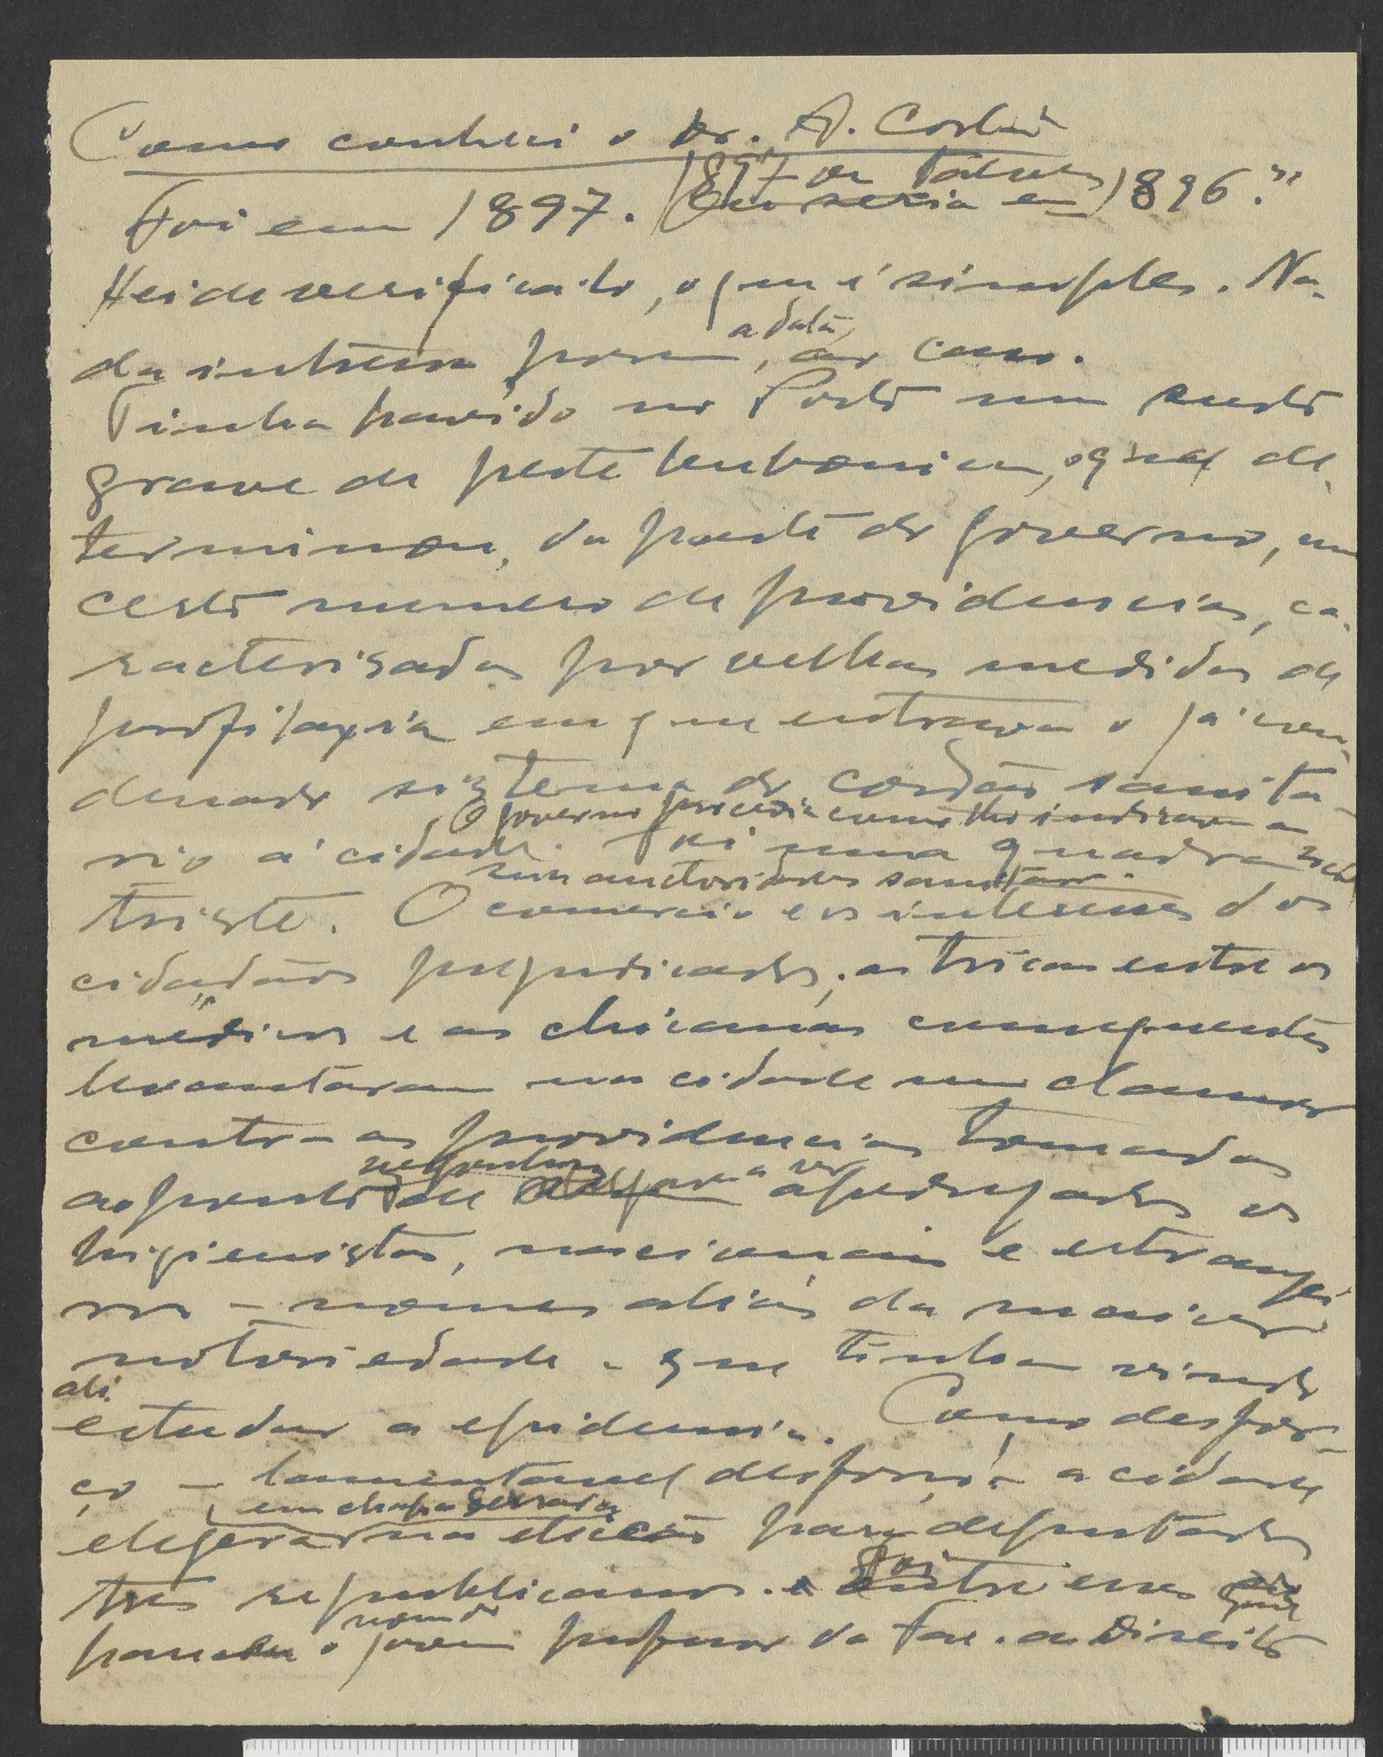 Como conheci o Dr. A. Costa
Foi em 1897. 1897 ou talvez
Ou seria em 1896?
Hei de verifica-lo, o que é simples. Na-
da interessa porem, a data, ao caso.
Tinha havido no Porto um surto
grave de peste bubonica, o qual de-
terminou, da parte do governo, um
certo numero de providencias, ca-
racterisadas por velhas medidas de
profilaxia em que entrava o já con-
denado sistema do cordão sanita-
rio á cidade. O governo procedia como lho indicavam as
suas auctoridades sanitarias.
Foi uma quadra
triste. O comercio e os interesses dos
cidadãos prejudicados; as tricas entre os
medicos e as chicanas consequentes
levantaram na cidade um clamor
contra as providencias tomadas
ao ponto de a ser apedrejados os
higienistas, nacionais e estrangei-
ros - nomes aliás da maior
notoriedade - que tinham vindo
ali
estudar a epidemia. Como desfor-
ço - lamentavel desforço! - a cidade
elegera na eleição para deputados
em chapa cerrada
tres republicanos. Foi entre esses que
o nome do jovem professor da Fac. de Direito